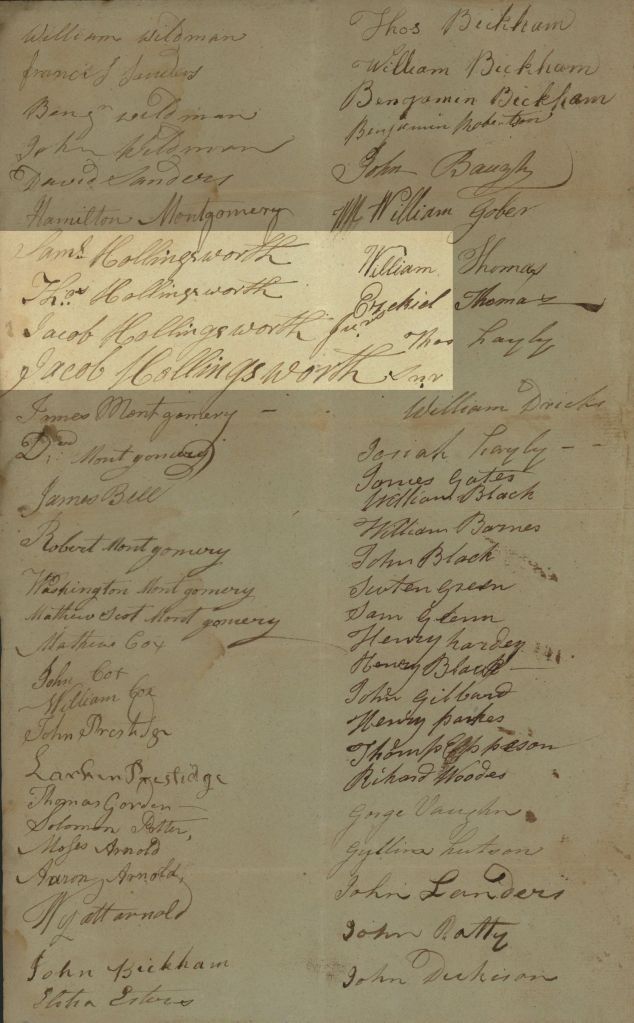 William Wildman
Francis Sanders
Benjn Wildman
John Wildman
David Sanders
Hamilton Montgomery
Saml Hollingsworth
Thos Hollingsworth
Jacob Hollingsworth Junr
Jacob Hollingsworth Snr
James Montgomery
Montgomery
James Bell
Robert Montgomery
Washington Montgomery
Mathew Scot Montgomery
Mathew Cox
John Cox
William Cox
John Prestidge
Larken Prestidge
Thomas Gorden
Solomon Potter
Moses Arnold
Aaron Arnold
Wyatt arnold
John Bickham
Elisha Estives
Thos Bickham
William Bickham
Benjamin Bickham
Benjamin Robertson
John Baugh
William Gober
William Thomas
Ezekiel Thomas
Thos Layly
William Dricks
Josiah Layly
James Gates
William Black
William Barnes
John Black
Suten Green
Sam Glenn
Henry hardey
Henry Black
John Gilbard
Henry parkes
Thomps Epperson
Rihard Woodes
Gorge Vaughn
Gyllina hutson
John Landers
John Ratty
John Dickison